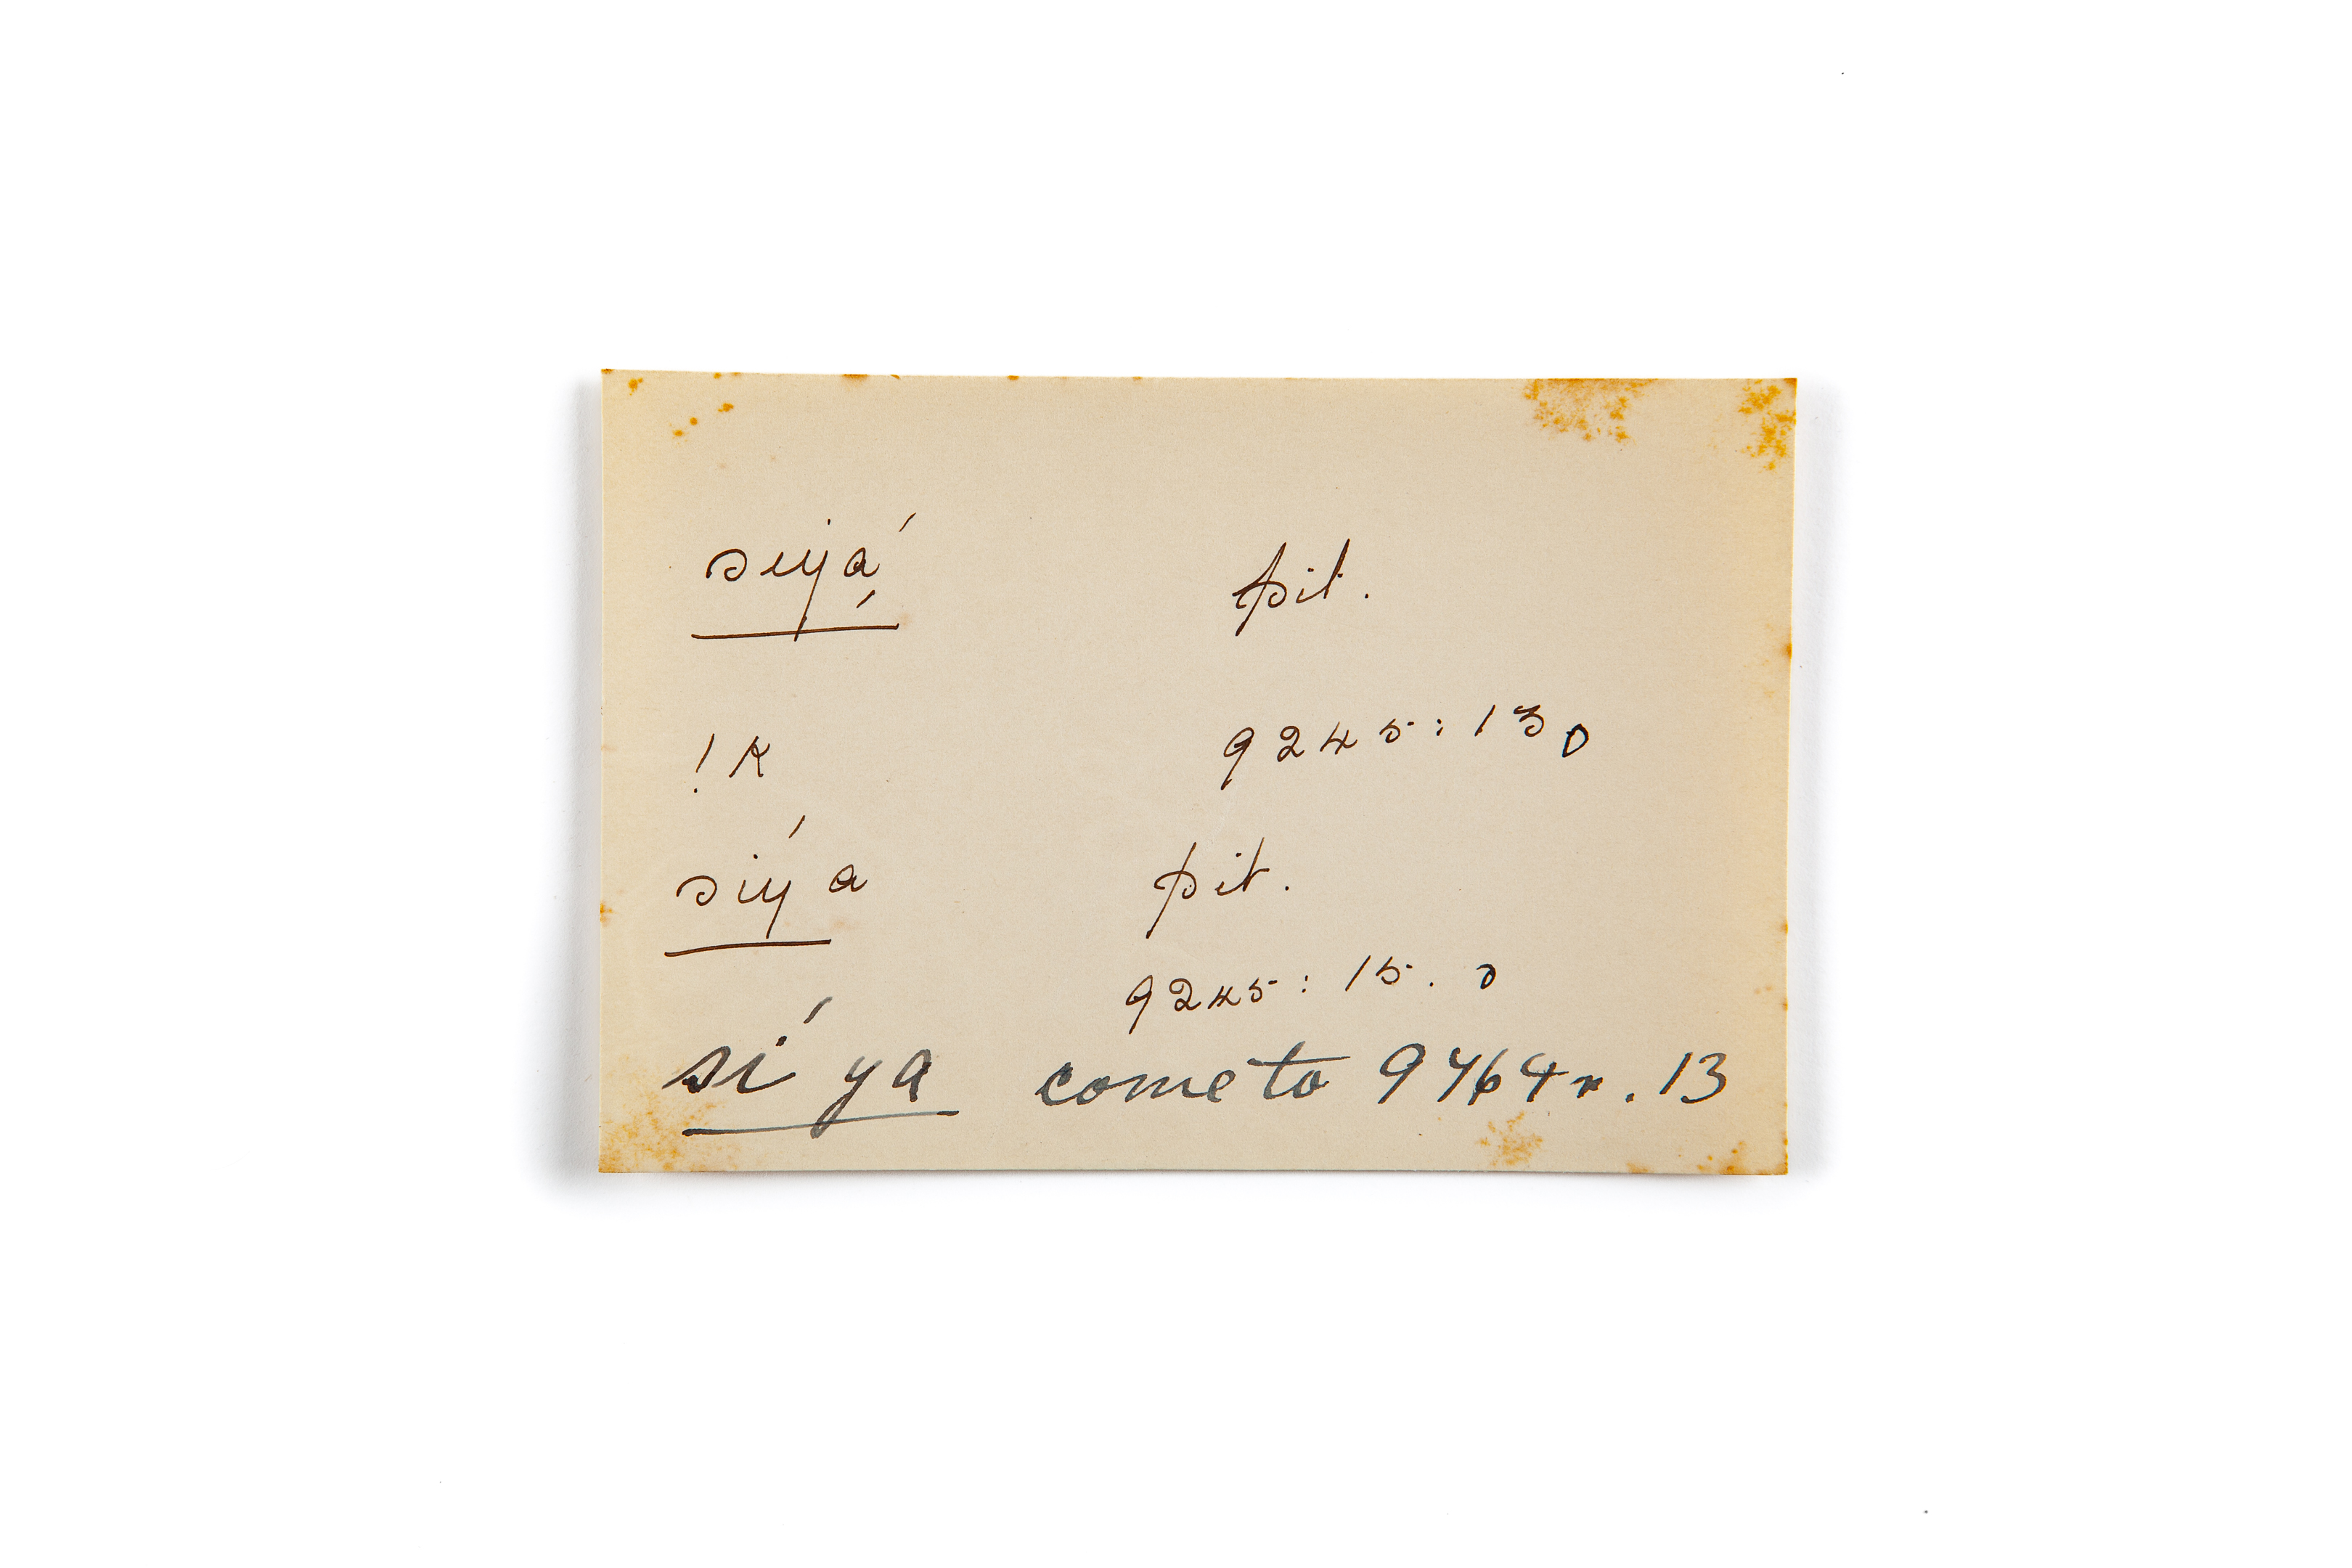 siyá pit.
!k 9245:13
siya pit.
9245: 15.
si ya come to 9464 r. 13